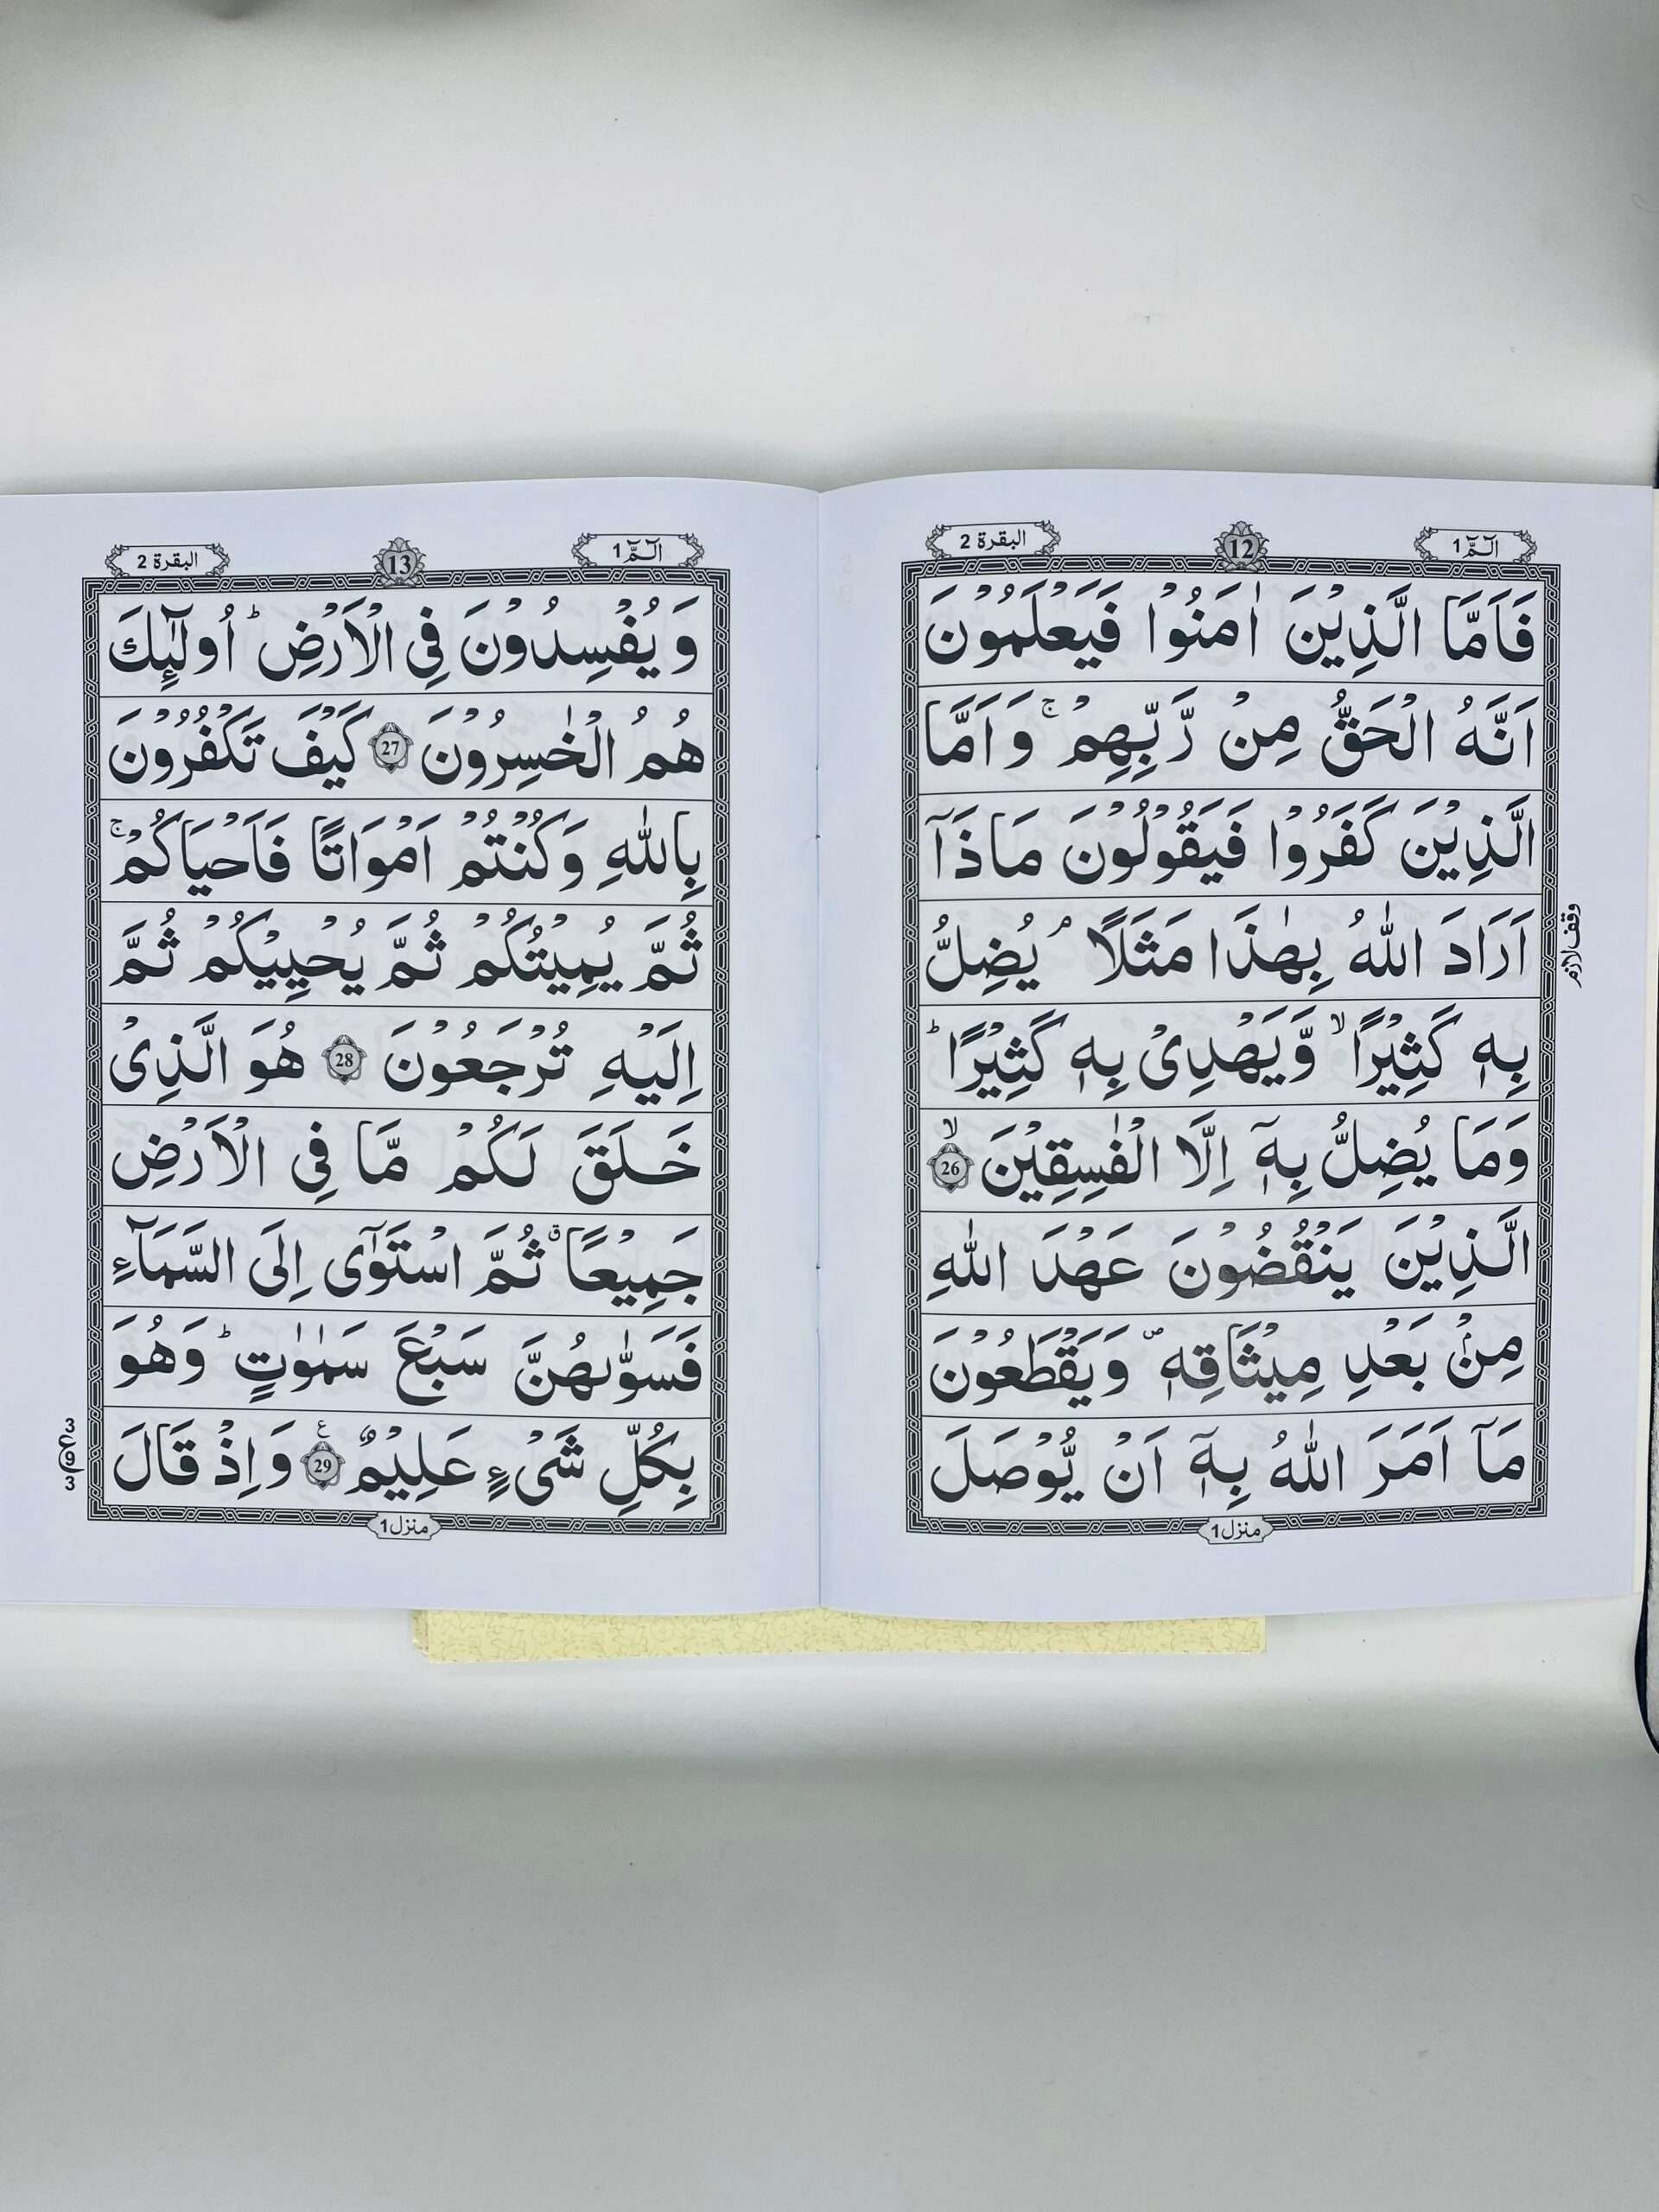 الٓمّٓ 1
12
البقرة 2
فَاَمَّا الَّذِيْنَ اٰمَنُوْا فَيَعْلَمُوْنَ
اَنَّهُ الْحَقُّ مِنْ رَّبِّهِمْ ۚ وَاَمَّا
الَّذِيْنَ كَفَرُوْا فَيَقُوْلُوْنَ مَاذَاۤ
اَرَادَ اللّٰهُ بِهٰذَا مَثَلًا ۘ يُضِلُّ
بِهٖ كَثِيْرًا ۙ وَّيَهْدِىْ بِهٖ كَثِيْرًا ؕ
وَمَا يُضِلُّ بِهٖۤ اِلَّا الْفٰسِقِيْنَ ۙ 26
الَّذِيْنَ يَنْقُضُوْنَ عَهْدَ اللّٰهِ
مِنْۢ بَعْدِ مِيْثَاقِهٖ ۪ وَيَقْطَعُوْنَ
مَاۤ اَمَرَ اللّٰهُ بِهٖۤ اَنْ يُّوْصَلَ
منزل 1
وقف لازم
الٓمّٓ 1
13
البقرة 2
وَيُفْسِدُوْنَ فِى الْاَرْضِ ؕ اُولٰٓئِكَ
هُمُ الْخٰسِرُوْنَ 27 كَيْفَ تَكْفُرُوْنَ
بِاللّٰهِ وَكُنْتُمْ اَمْوَاتًا فَاَحْيَاكُمْ ۚ
ثُمَّ يُمِيْتُكُمْ ثُمَّ يُحْيِيْكُمْ ثُمَّ
اِلَيْهِ تُرْجَعُوْنَ 28 هُوَ الَّذِىْ
خَلَقَ لَكُمْ مَّا فِى الْاَرْضِ
جَمِيْعًا ۗ ثُمَّ اسْتَوٰٓى اِلَى السَّمَآءِ
فَسَوّٰىهُنَّ سَبْعَ سَمٰوٰتٍ ؕ وَهُوَ
بِكُلِّ شَىْءٍ عَلِيْمٌ 29 وَاِذْ قَالَ
منزل 1
3
ع
9
3